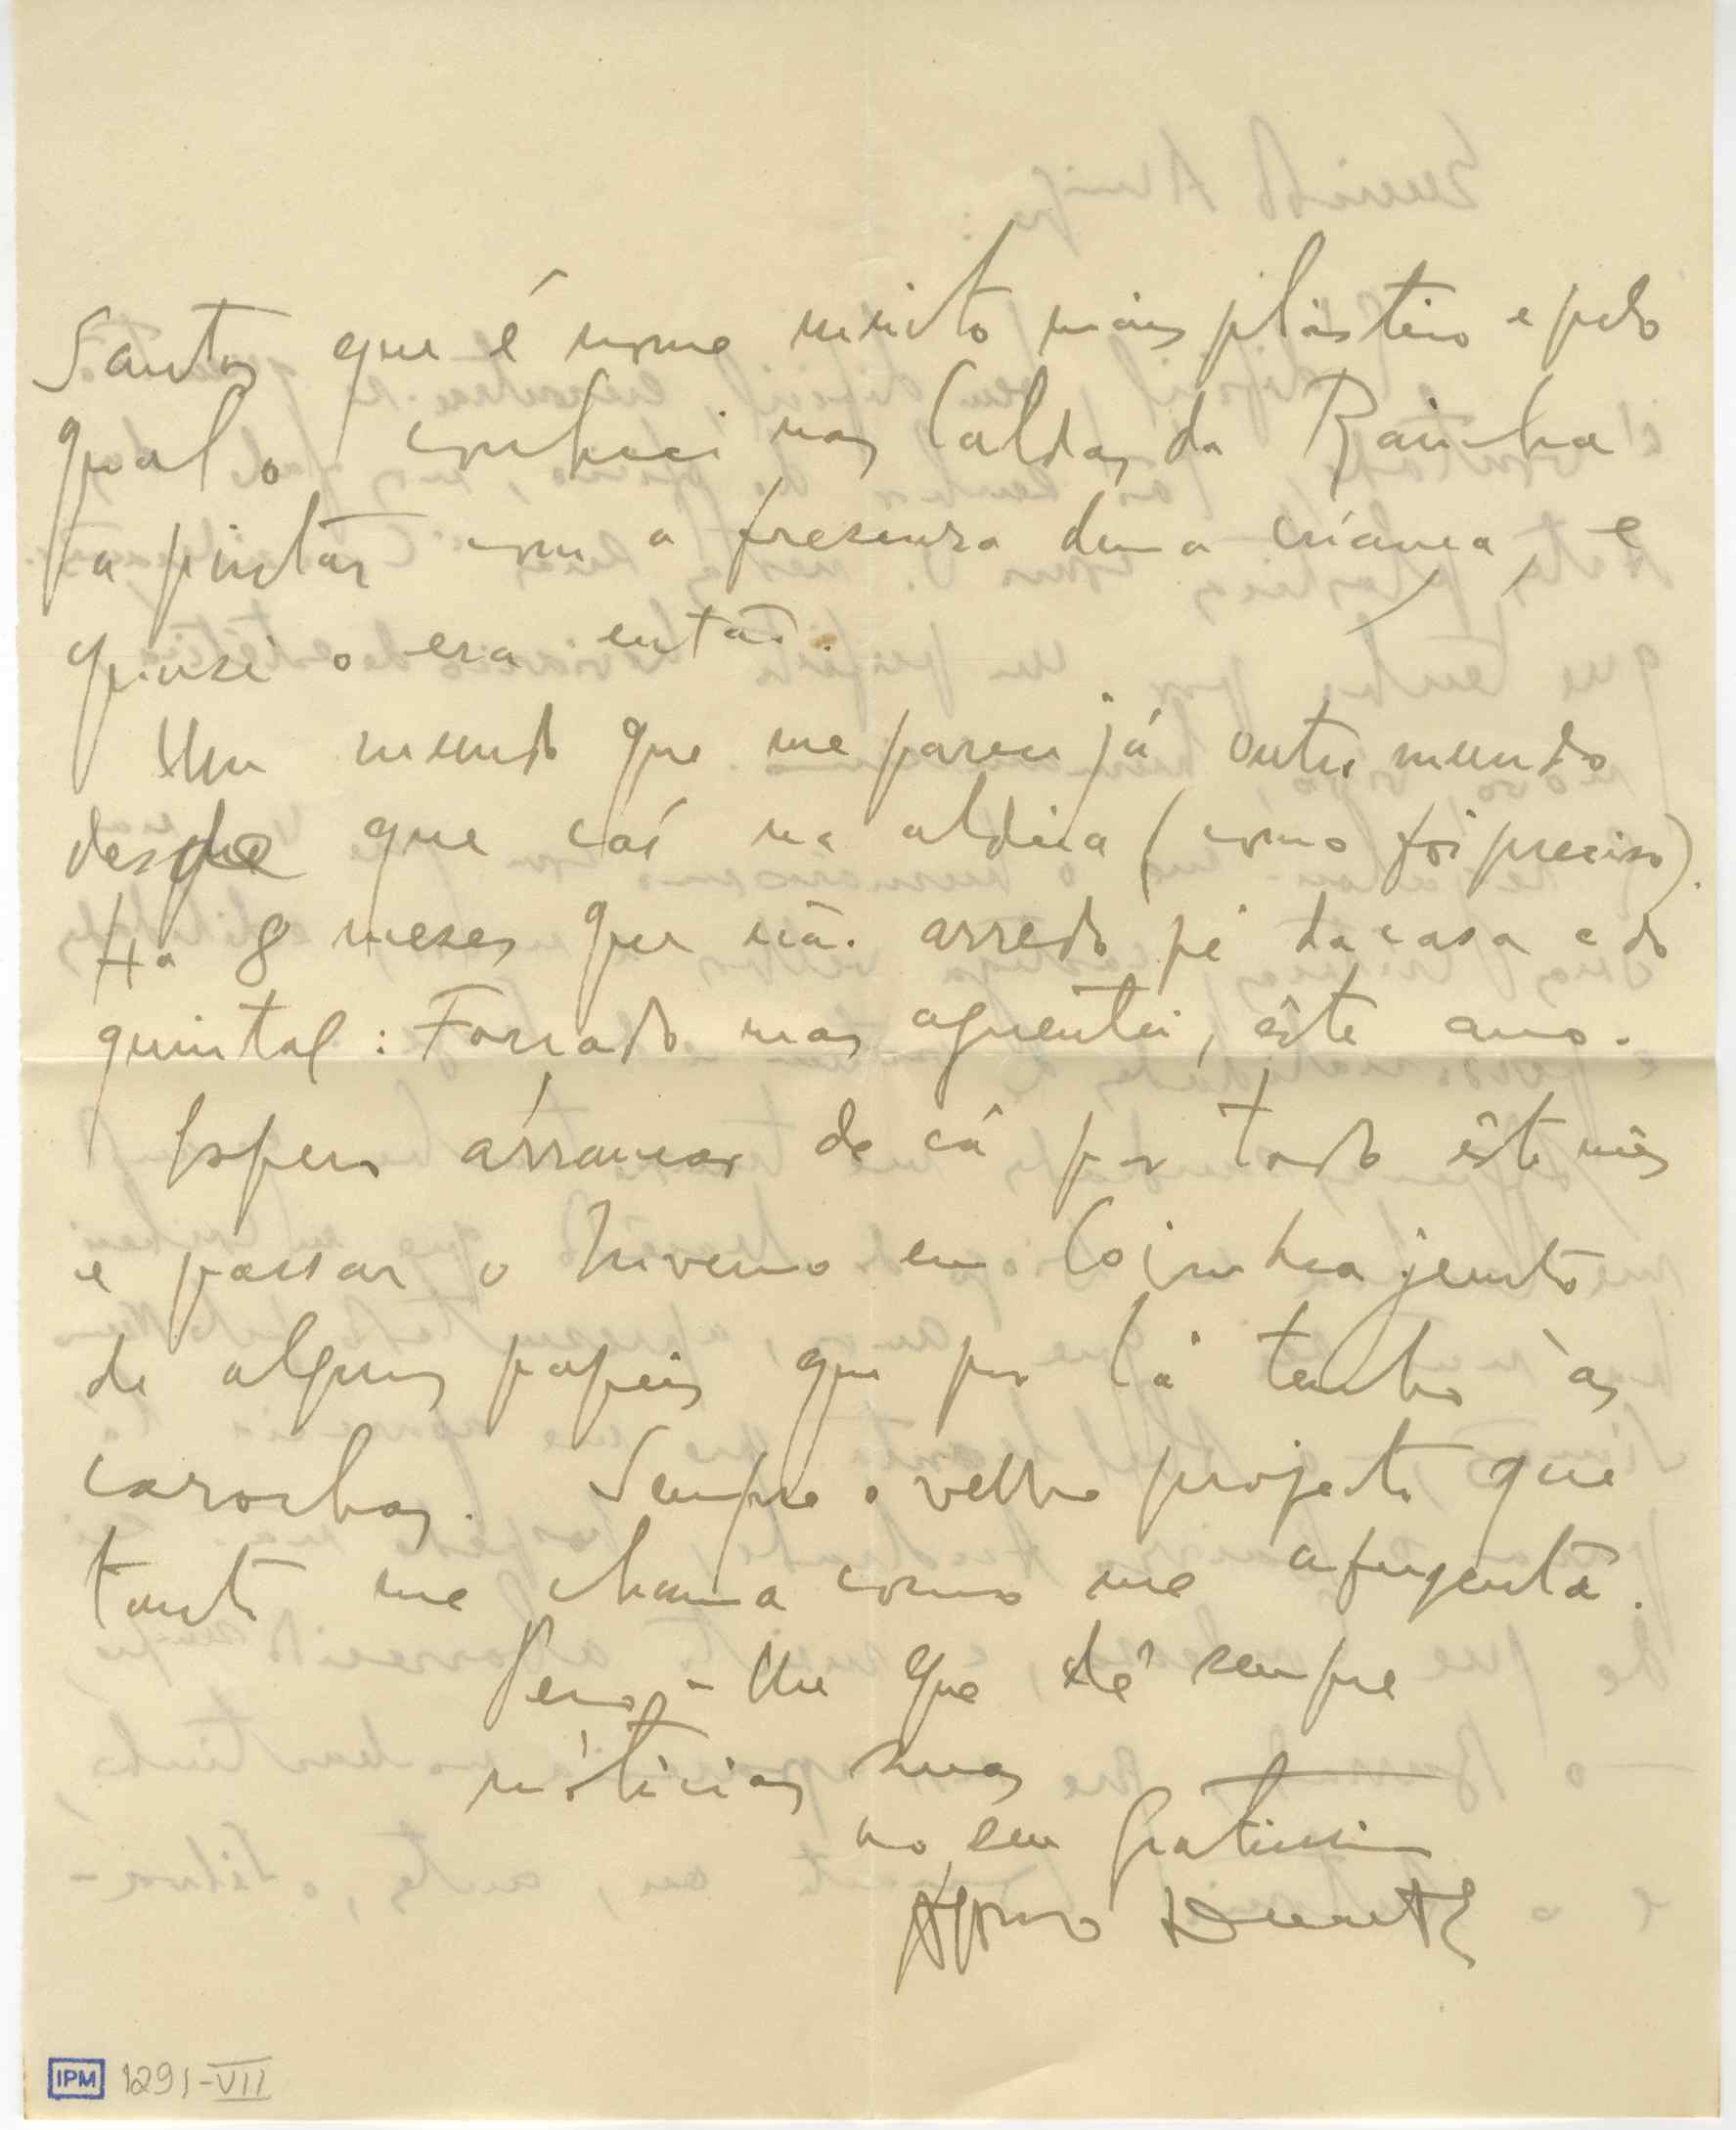 Santos que é nome muito mais plástico e pelo
qual o conheci nas Caldas da Rainha
a pintar com a frescura duma criança, e
quási o era então.
Um mundo que me parece já outro mundo
desde que caí na aldeia (como foi preciso).
Há 8 meses que não arredo pé da casa e do
quintal: Forçado mas aguentei, êste ano.
Espero arrancar de cá por todo êste mês
e passar o Inverno em Coimbra junto
de alguns papeis que por lá tenho às
carochas. Sempre o velho projecto que
tanto me chama como me afugenta.
Peço-lhe que dê sempre
nóticias suas
ao seu gratissimo
Afonso Duarte
IPM 1291-VII